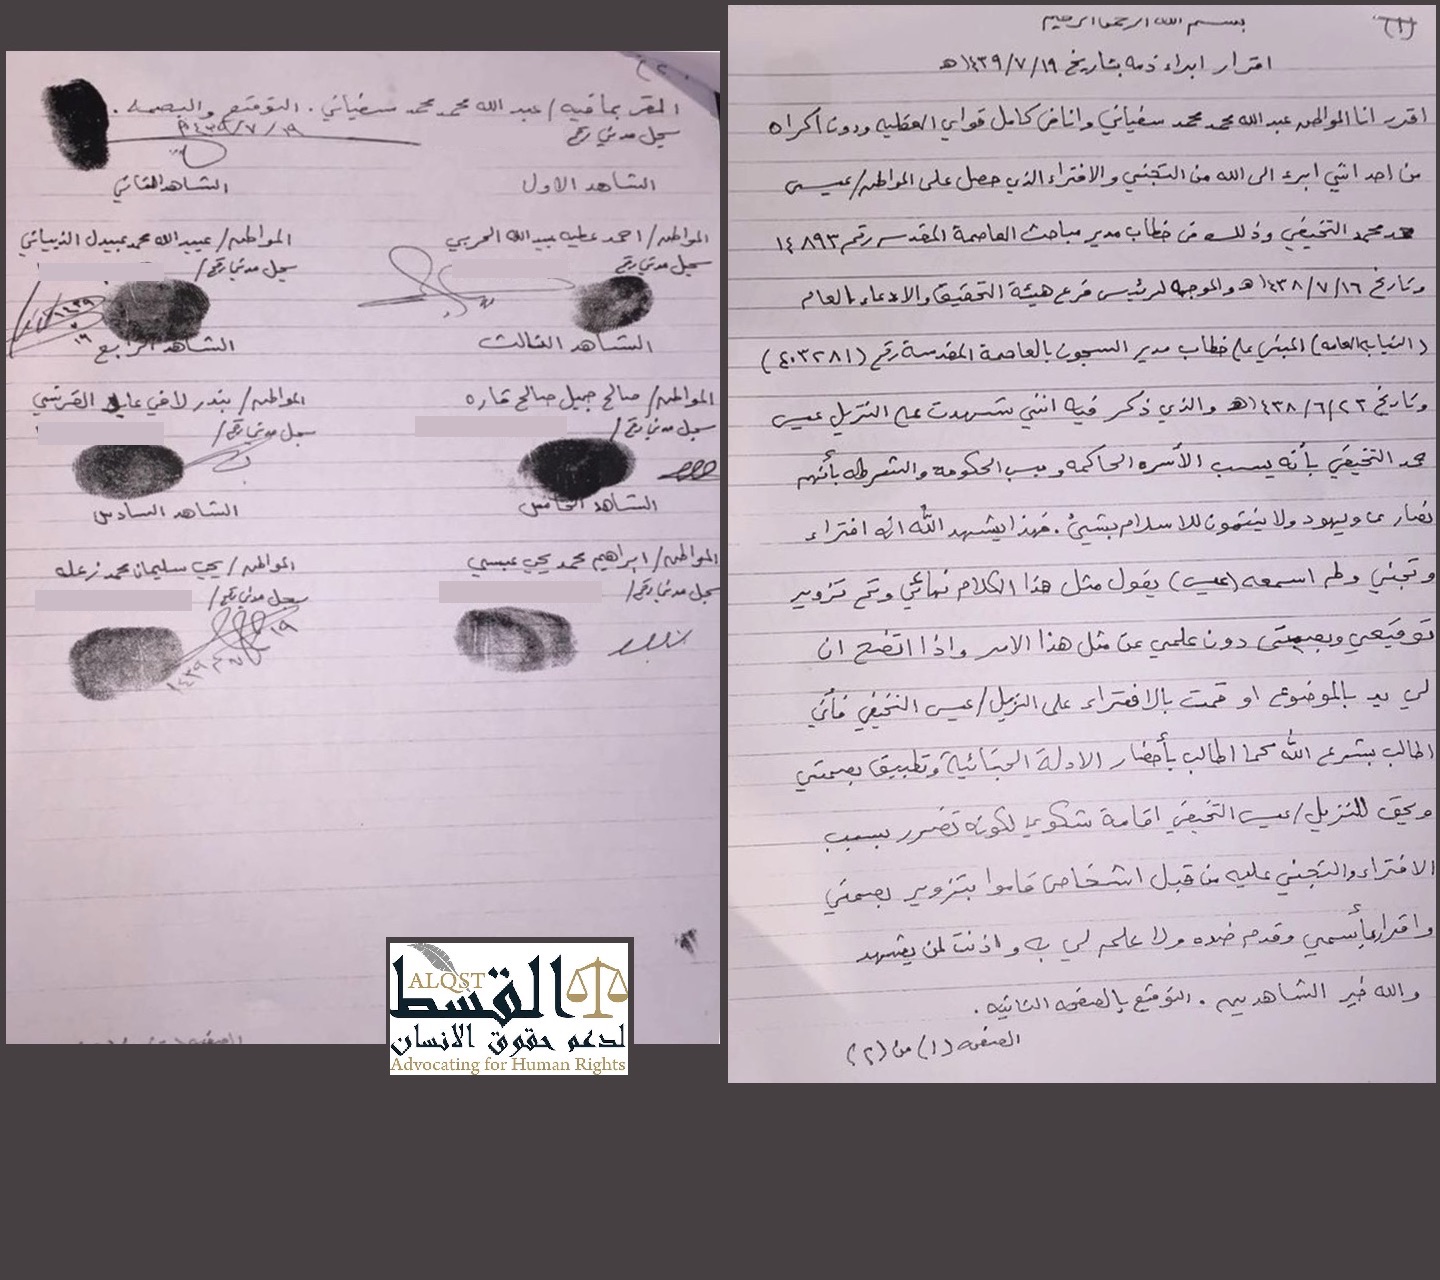 (١)
بسم الله الرحمن الرحيم
اقرار ابراء ذمه بتاريخ ١٤٣٩/٧/١٩هـ
اقدر انا المواطن عبدالله محمد محمد سفياني وانا في كامل قواي العقليه ودون اكراه
من احد انني ابرء الى الله من التجني والافتراء الذي حصل على المواطن/عيسى
محمد النخيفي وذلك في خطاب مدير مباحث العاصمة المقدسه رقم ١٤٨٩٣
وتاريخ ١٤٣٨/٧/١٦هـ والموجه لرئيس فرع هيئة التحقيق والادعاء العام
(النيابه العامه) المبني على خطاب مدير السجون بالعاصمة المقدسة رقم (٤٠٣٢٨١)
وتاريخ ١٤٣٨/٦/٢٣هـ والذي ذكر فيه انني شهدت على النزيل عيسى
محمد النخيفي بأنه يسب الأسره الحاكمه ويسب الحكومه والشرطه بأنهم
نصارى ويهود ولا ينتمون للاسلام بشيئ. فهذا يشهد الله انه افتراء
وتجني ولم اسمعه (عيسى) يقول مثل هذا الكلام نهائي وتم تزوير
توقيعي وبصمتي دون علمي عن مثل هذا الامر واذا اتضح ان
لي يد بالموضوع او قمت بالافتراء على النزيل/عيسى النخيفي فأني
اطالب بشرع الله كما اطالب بأحضار الادلة الجنائية وتطبيق بصمتي
ويحق للنزيل/عيسى النخيفي اقامة شكوى لكونه تضرر بسبب
الافتراء والتجني عليه من قبل اشخاص قاموا بتزوير بصمتي
واقرار بأسمي وقدم ضده ولا علم لي به واذنت لمن يشهد
والله خير الشاهدين. التوقيع بالصفحه الثانيه.
الصفحه (١) من (٢)
(٢)
المقر بما فيه/ عبدالله محمد محمد سفياني. التوقيع والبصمه.
سجل مدني رقم
١٤٣٩/٧/١٩
الشاهد الاول
الشاهد الثاني
المواطن/ احمد عطيه عبدالله الحربي
المواطن/ عبدالله محمد عبيدل الذبياني
سجل مدني رقم
سجل مدني رقم/
١٤٣٩
١٩
الشاهد الثالث
الشاهد الرابع
المواطن/ صالح جميل صالح قاره
المواطن/ بندر لافي عايد القرشي
سجل مدني رقم/
سجل مدني رقم/
الشاهد الخامس
الشاهد السادس
المواطن/ ابراهيم محمد يحي عبسي
المواطن/ يحي سليمان محمد زعله
سجل مدني رقم/
سجل مدني رقم/
ALQST
القسط
لدعم حقوق الانسان
Advocating for Human Rights